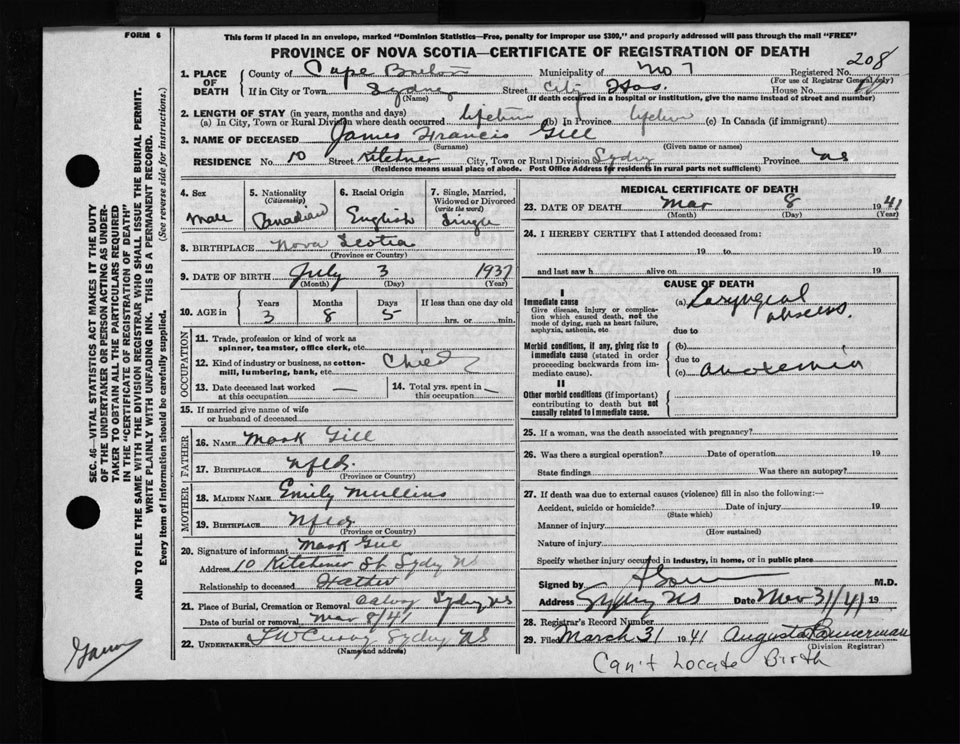 FORM 6
This form if placed in an envelope, marked "Dominion Statistics—Free, penalty for improper use $300," and properly addressed will pass through the mail "FREE"
PROVINCE OF NOVA SCOTIA—CERTIFICATE OF REGISTRATION OF DEATH
SEC. 46—VITAL STATISTICS ACT MAKES IT THE DUTY
OF THE UNDERTAKER OR PERSON ACTING AS UNDER-
TAKER TO OBTAIN ALL THE PARTICULARS REQUIRED
IN THE "CERTIFICATE OF REGISTRATION OF DEATH"
AND TO FILE THE SAME WITH THE DIVISION REGISTRAR WHO SHALL ISSUE THE BURIAL PERMIT.
WRITE PLAINLY WITH UNFADING INK. THIS IS A PERMANENT RECORD.
Every item of information should be carefully supplied. (See reverse side for instructions.)
1. PLACE OF DEATH County of Cape Breton Municipality of No 7 Registered No. 208
(For use of Registrar General only)
If in City or Town Sydney Street City Hos. House No.
(Name) (If death occurred in a hospital or institution, give the name instead of street and number)
2. LENGTH OF STAY (in years, months and days)
(a) In City, Town or Rural Division where death occurred lifetime (b) In Province lifetime (c) In Canada (if immigrant)
3. NAME OF DECEASED James Francis Gill
(Surname) (Given name or names)
RESIDENCE No. 10 Street Kitchener City, Town or Rural Division Sydney Province NS
(Residence means usual place of abode. Post Office Address for residents in rural parts not sufficient)
4. Sex Male
5. Nationality (Citizenship) Canadian
6. Racial Origin English
7. Single, Married, Widowed or Divorced (write the word) Single
8. BIRTHPLACE Nova Scotia
(Province or Country)
9. DATE OF BIRTH July 3 1937
(Month) (Day) (Year)
10. AGE in Years 3 Months 8 Days 5 If less than one day old hrs. or min.
OCCUPATION
11. Trade, profession or kind of work as spinner, teamster, office clerk, etc.
12. Kind of industry or business, as cotton-mill, lumbering, bank, etc. Child
13. Date deceased last worked at this occupation —
14. Total yrs. spent in this occupation —
15. If married give name of wife or husband of deceased
FATHER
16. NAME Mark Gill
17. BIRTHPLACE Nfld.
(Province or Country)
MOTHER
18. MAIDEN NAME Emily Mullins
19. BIRTHPLACE Nfld
(Province or Country)
20. Signature of informant Mark Gill
Address 10 Kitchener St Sydney NS
Relationship to deceased Father
21. Place of Burial, Cremation or Removal Calvary Sydney NS
Date of burial or removal Mar 8/41
22. UNDERTAKER Sydney NS
(Name and address)
MEDICAL CERTIFICATE OF DEATH
23. DATE OF DEATH Mar 8 1941
(Month) (Day) (Year)
24. I HEREBY CERTIFY that I attended deceased from:
19 to 19
and last saw h alive on 19
CAUSE OF DEATH
I
Immediate cause
Give disease, injury or complication which caused death, not the mode of dying, such as heart failure, asphyxia, asthenia, etc
(a) Laryngeal abscess.
due to
Morbid conditions, if any, giving rise to immediate cause (stated in order proceeding backwards from immediate cause).
(b)
due to
(c) anoxemia
II
Other morbid conditions (if important) contributing to death but not causally related to immediate cause.
25. If a woman, was the death associated with pregnancy?
26. Was there a surgical operation? Date of operation 19
State findings Was there an autopsy?
27. If death was due to external causes (violence) fill in also the following:—
Accident, suicide or homicide? Date of injury 19
(State which)
Manner of injury
(How sustained)
Nature of injury
Specify whether injury occurred in industry, in home, or in public place
Signed by M.D.
Address Sydney NS Date 31/41 19
28. Registrar's Record Number
29. Filed March 31 1941 Augusta Bannerman
(Division Registrar)
Can't Locate Birth